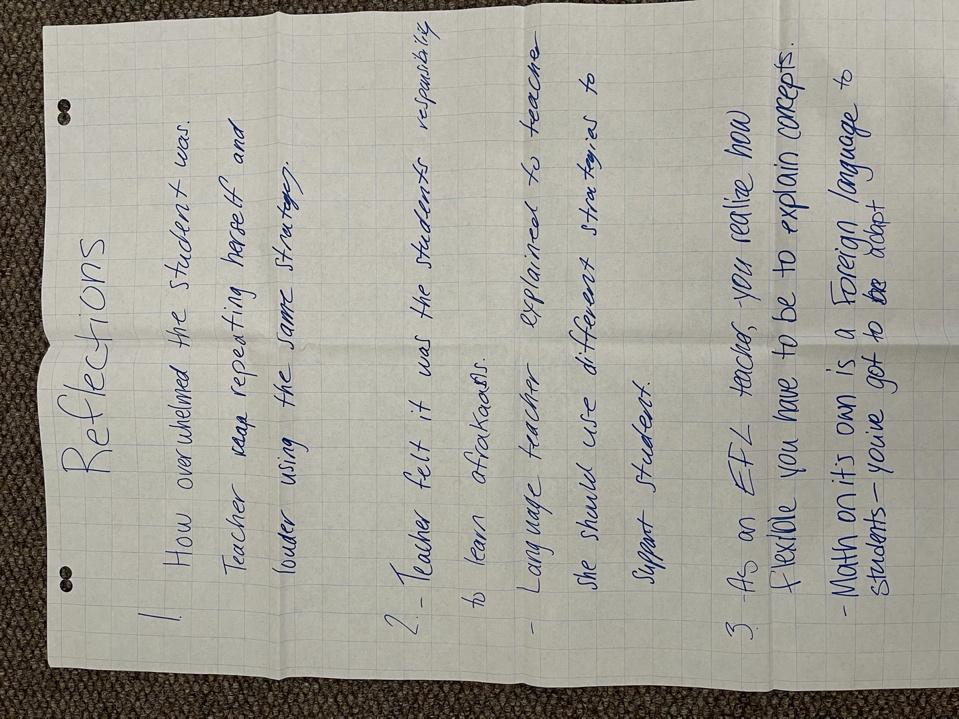 Reflections
1 How overwhelmed the student was.
Teacher keap repeating herself and
louder using the same strategy.
2. - Teacher felt it was the students responsibility
to learn afrakaans.
- Language teacher explained to teacher
she should use different strategies to
support student.
3. -As an EFL teacher, you realize how
flexible you have to be to explain concepts.
- Math on it's own is a Foreign language to
students - you've got to adapt